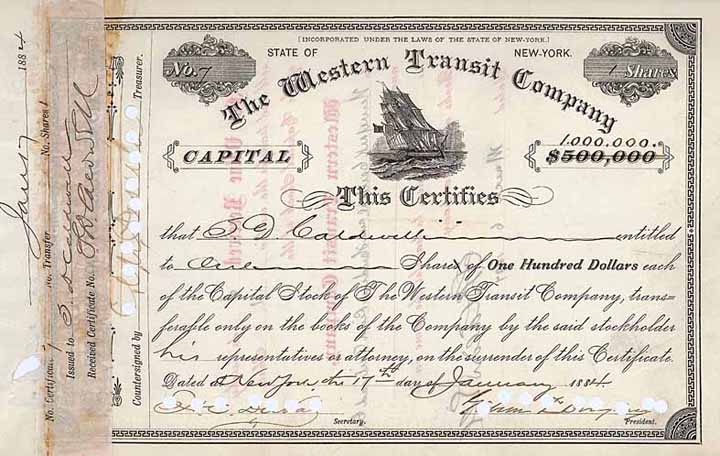 [INCORPORATED UNDER THE LAWS OF THE STATE OF NEW-YORK.]
STATE OF NEW-YORK.
No. 7
1 Shares
The Western Transit Company
CAPITAL
1.000.000.
$500,000
This Certifies
that S D. Caldwell entitled
to One Share of One Hundred Dollars each
of the Capital Stock of The Western Transit Company, trans=
ferable only on the books of the Company by the said stockholder
his representatives or attorney, on the surrender of this Certificate.
Dated at New York, the 17th day of January 1884.
Secretary.
President.
Countersigned by
Treasurer.
No. Certificate 7 No. Transfer No. Shares 1
Issued to S. D Caldwell
Received Certificate No.
Jany 17 1884